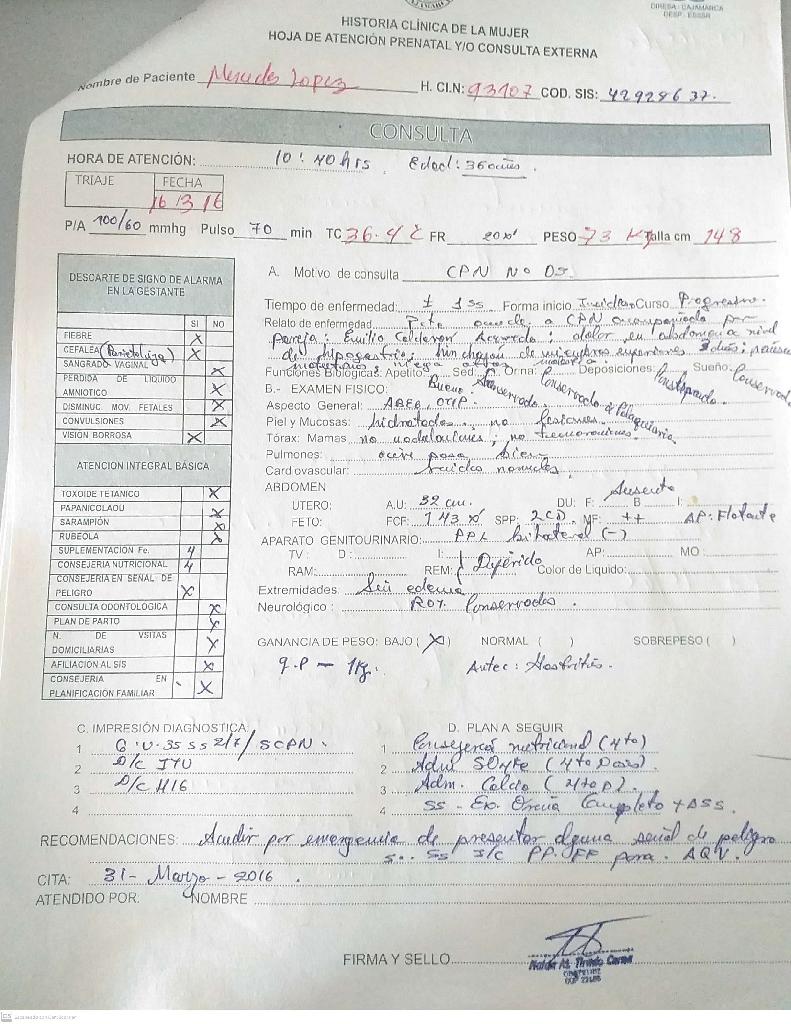 DIRESA - CAJAMARCA
HISTORIA CLÍNICA DE LA MUJER
HOJA DE ATENCIÓN PRENATAL Y/O CONSULTA EXTERNA
Nombre de Paciente Mercedes Lopez H. Cl.N: 93107 COD. SIS: 42928637.
CONSULTA
HORA DE ATENCIÓN: 10:40 hrs Edad: 36 años.
TRIAJE FECHA
16 3 16
P/A 100/60 mmhg Pulso 70 min TC 36.4 C FR 20x' PESO 73 Kg Talla cm 148
DESCARTE DE SIGNO DE ALARMA EN LA GESTANTE
SI NO
FIEBRE X
CEFALEA (Parietal) X
SANGRADO VAGINAL X
PERDIDA DE LIQUIDO AMNIOTICO X
DISMINUC. MOV. FETALES X
CONVULSIONES X
VISION BORROSA X
ATENCION INTEGRAL BÁSICA
TOXOIDE TETANICO X
PAPANICOLAOU X
SARAMPIÓN X
RUBEOLA X
SUPLEMENTACION Fe. 4
CONSEJERIA NUTRICIONAL 4
CONSEJERIA EN SEÑAL DE PELIGRO X
CONSULTA ODONTOLÓGICA X
PLAN DE PARTO X
N. DE VSITAS DOMICILIARIAS X
AFILIACIÓN AL SIS X
CONSEJERIA EN PLANIFICACIÓN FAMILIAR X
A. Motivo de consulta CPN No 05.
Tiempo de enfermedad: ± 1 ss Forma inicio Insidioso Curso Progresivo.
Relato de enfermedad Pcte acude a CPN acompañada por
pareja: Emilio Calderón; dolor en abdomen a nivel
de hipogastrio, hinchazón de miembros superiores 3 días;
Funciones Biológicas: Apetito: Bueno Sed: Conservado Orina: Conservado Deposiciones: Sueño: Conservado
B.- EXAMEN FISICO:
Aspecto General: ABEG, OTEP.
Piel y Mucosas: hidratadas, no lesiones.
Tórax: Mamas no nodulaciones; no
Pulmones: aire pasa bien
Cardiovascular: ruidos normales.
ABDOMEN
UTERO: A.U: 32 cm. DU: F: Ausente B I:
FETO: FCF: 143 x' SPP: LCD MF: ++ AP: Flotante
APARATO GENITOURINARIO: PPL bilateral (-)
TV: D: I: AP: MO:
RAM: REM: Diferido Color de Liquido:
Extremidades Sin edema
Neurológico: ROT. Conservados.
GANANCIA DE PESO: BAJO (X) NORMAL ( ) SOBREPESO ( )
g.p - 1Kg. Antec: Gastritis.
C. IMPRESIÓN DIAGNOSTICA:
1 G:V. 35 ss 2/7 / SCPN.
2 D/C ITU
3 D/C HIG
4
D. PLAN A SEGUIR
1 Consejería nutricional (4to)
2 Adm SO4Fe (4to Dosis).
3 Adm. Calcio (4to D).
4 SS - Ex. Orina Completo + ASS.
RECOMENDACIONES: Acudir por emergencia de presentar alguna señal de peligro
S.. SS I/C PP.FF para AQV.
CITA: 31 - Marzo - 2016.
ATENDIDO POR: NOMBRE
FIRMA Y SELLO
OBSTETRIZ